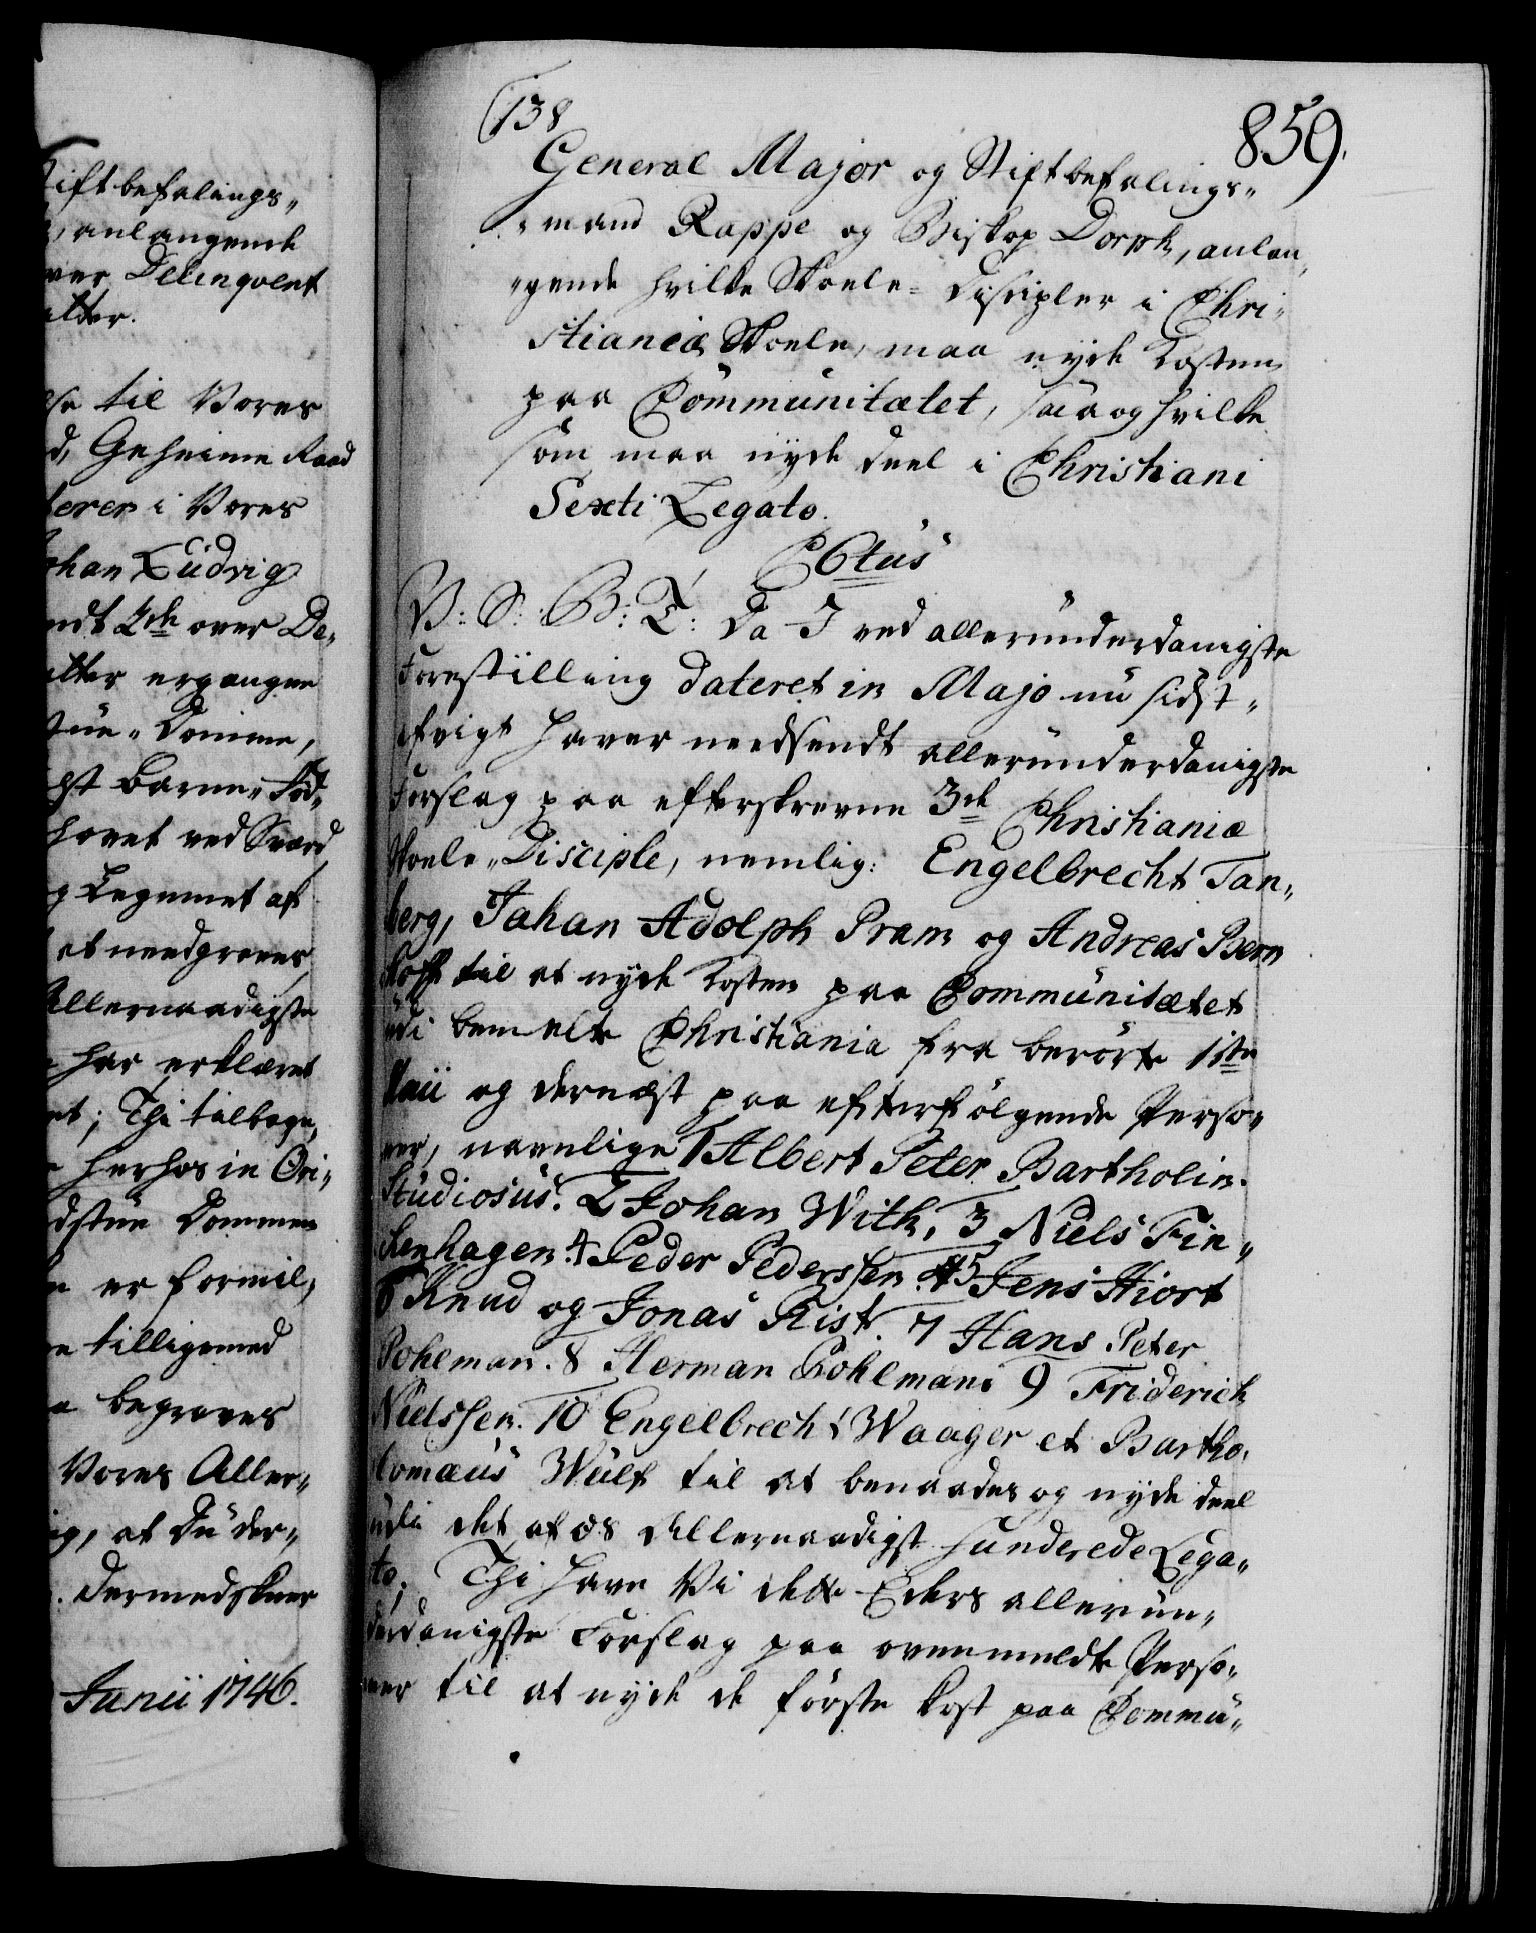 Stiftbefalings„
anlangende
over Delinqvent
atter.
lse til Vores
d, Geheime Raad
terer i Vores
Johan Ludvig
ndt 2de over De„
atter ergangne
stue„ Domme,
gst Barne„ Fød„
hovet ved Sværd
og Legemet at
at needgraves
Allernaadigste
har erklæret
et; Thi tilbage„
herhos in Ori„
dstue Dommen
er formil„
tilligemed
begraves
Vores Aller„
ig, at Du der„
. Dermed skeer
Junii 1746.
859.
(138
General Major og Stiftbefalings„
„mand Rappe og Biskop Dorph, anlan„
„gende hvilke Skoele- Discipler i Chri„
stianiæ Skoele, maa nyde Kosten
paa Communitætet, saa og hvilke
som maa nyde deel i Christiani
Sexti Legato.
C 6tus
V: S: B: T: Da I ved allerunderdanigste
Forestilling dateret in Majo nu sidst„
afvigt haver needsendt allerunderdanigste
Forslag paa efterskrevne 3de Christianiæ
Skoele„ Disciple, nemlig: Engelbrecht Tan„
berg, Jahan Adolph Pram og Andreas Bern
hoff til at nyde Kosten paa Communitætet
udi bemelte Christiania fra berørte 1ste
Maii og dernæst paa efterfølgende Perso„
ner, navnlige 1 Albert Peter Bartholin.
Studiosus. 2 Johan With, 3 Niels Fin„
kenhagen. 4 Peder Pederssen. 5 Jens Hiort
6 Knud og Jonas Rist. 7 Hans Peter
Pohlman. 8 Herman Pohlman 9 Friderich
Nielssen. 10 Engelbrecht Waager et Bartho„
lomæus Wulf til at benaades og nyde deel
udi det af os Allernaadigst funderede Lega„
to. Thi have Vi dette Eders allerun„
derdanigste Forslag paa ovenmeldte Perso„
ner til at nyde de første Kost paa Commu„